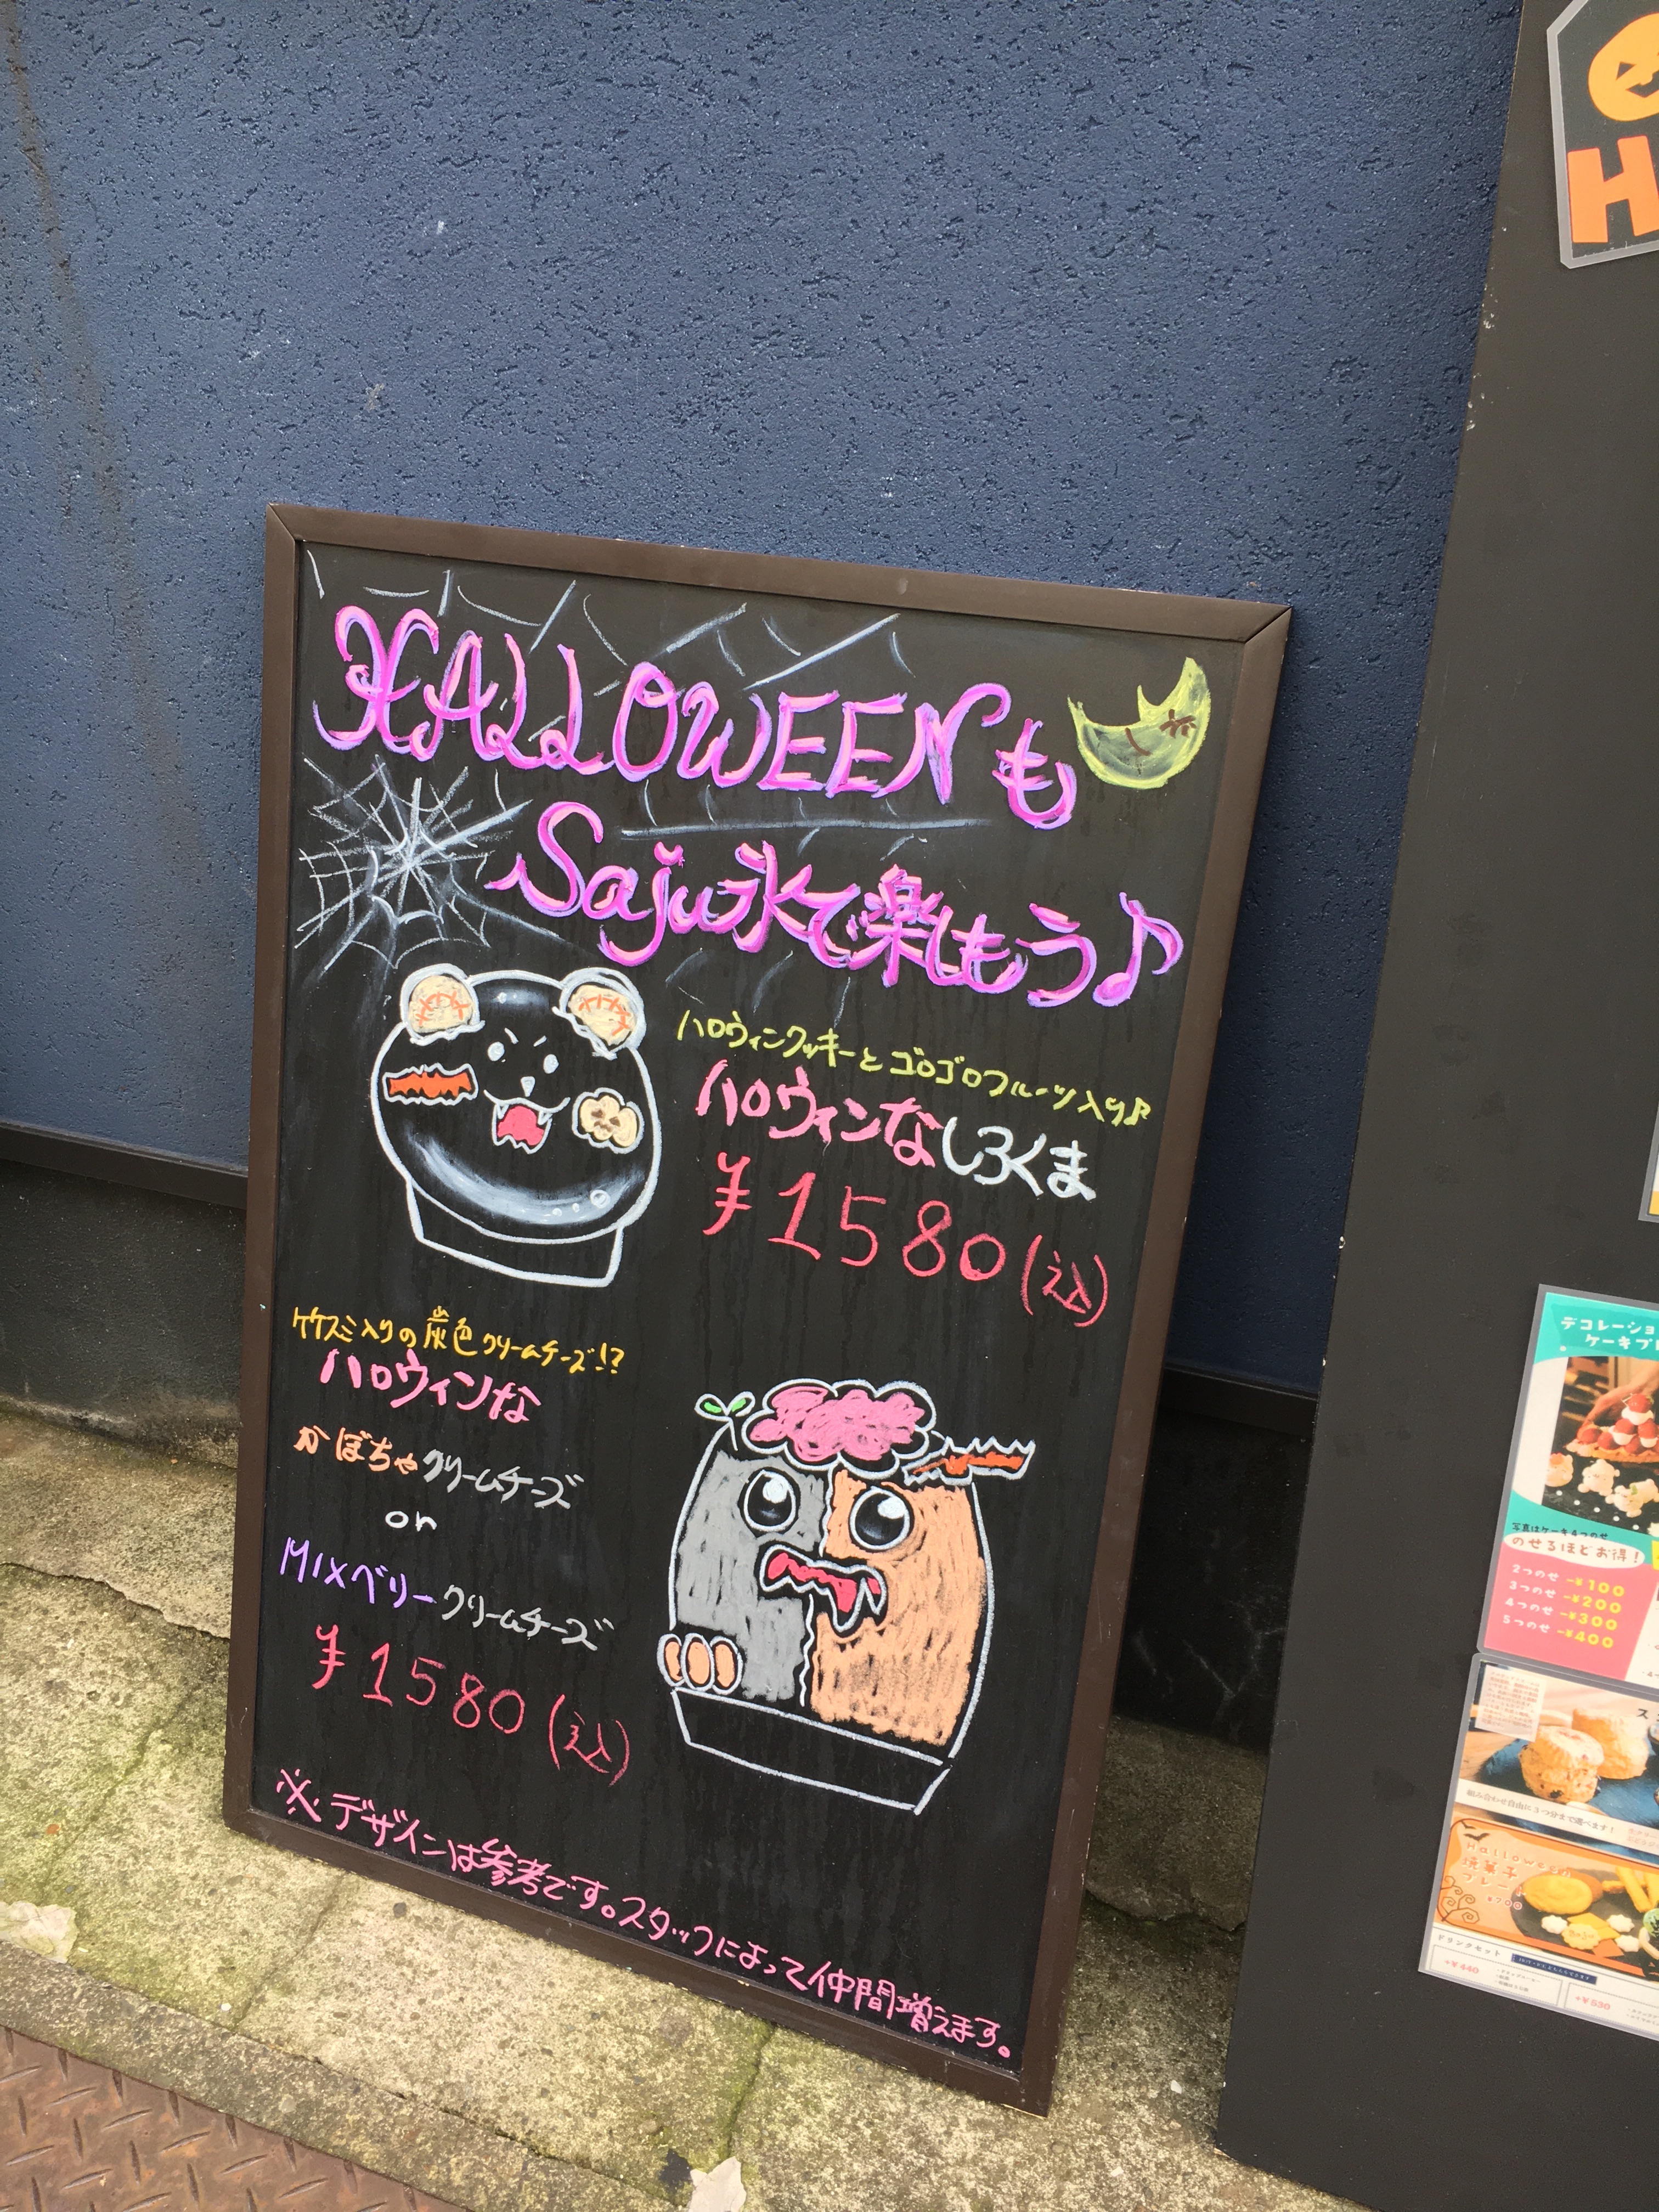 HALLOWEENも
Saju氷で楽しもう♪
ハロウィンクッキーとゴロゴロフルーツ入り♪
ハロウィンなしろくま
¥1580(込)
竹スミ入りの炭色クリームチーズ!?
ハロウィンな
かぼちゃクリームチーズ
or
MIXベリークリームチーズ
¥1580(込)
※デザインは参考です。スタッフによって仲間増えます。
H
デコレーショ
ケーキプ
写真はケーキ4つのせ
のせるほどお得!
2つのせ -¥100
3つのせ -¥200
4つのせ -¥300
5つのせ -¥400
ス
組み合わせ自由に3つ分まで選べます!
Halloween
焼菓子
プレート
¥700
ドリンクセット
+¥440
+¥530